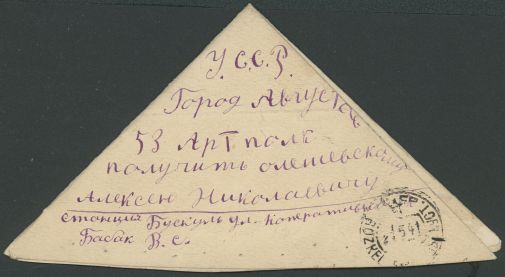 У.С.С.Р.
Город Августов
53 Арт полк
получить олешевскому
Алексею Николаевичу
станция Бускуль ул. Каперативная
Бабак В. С.